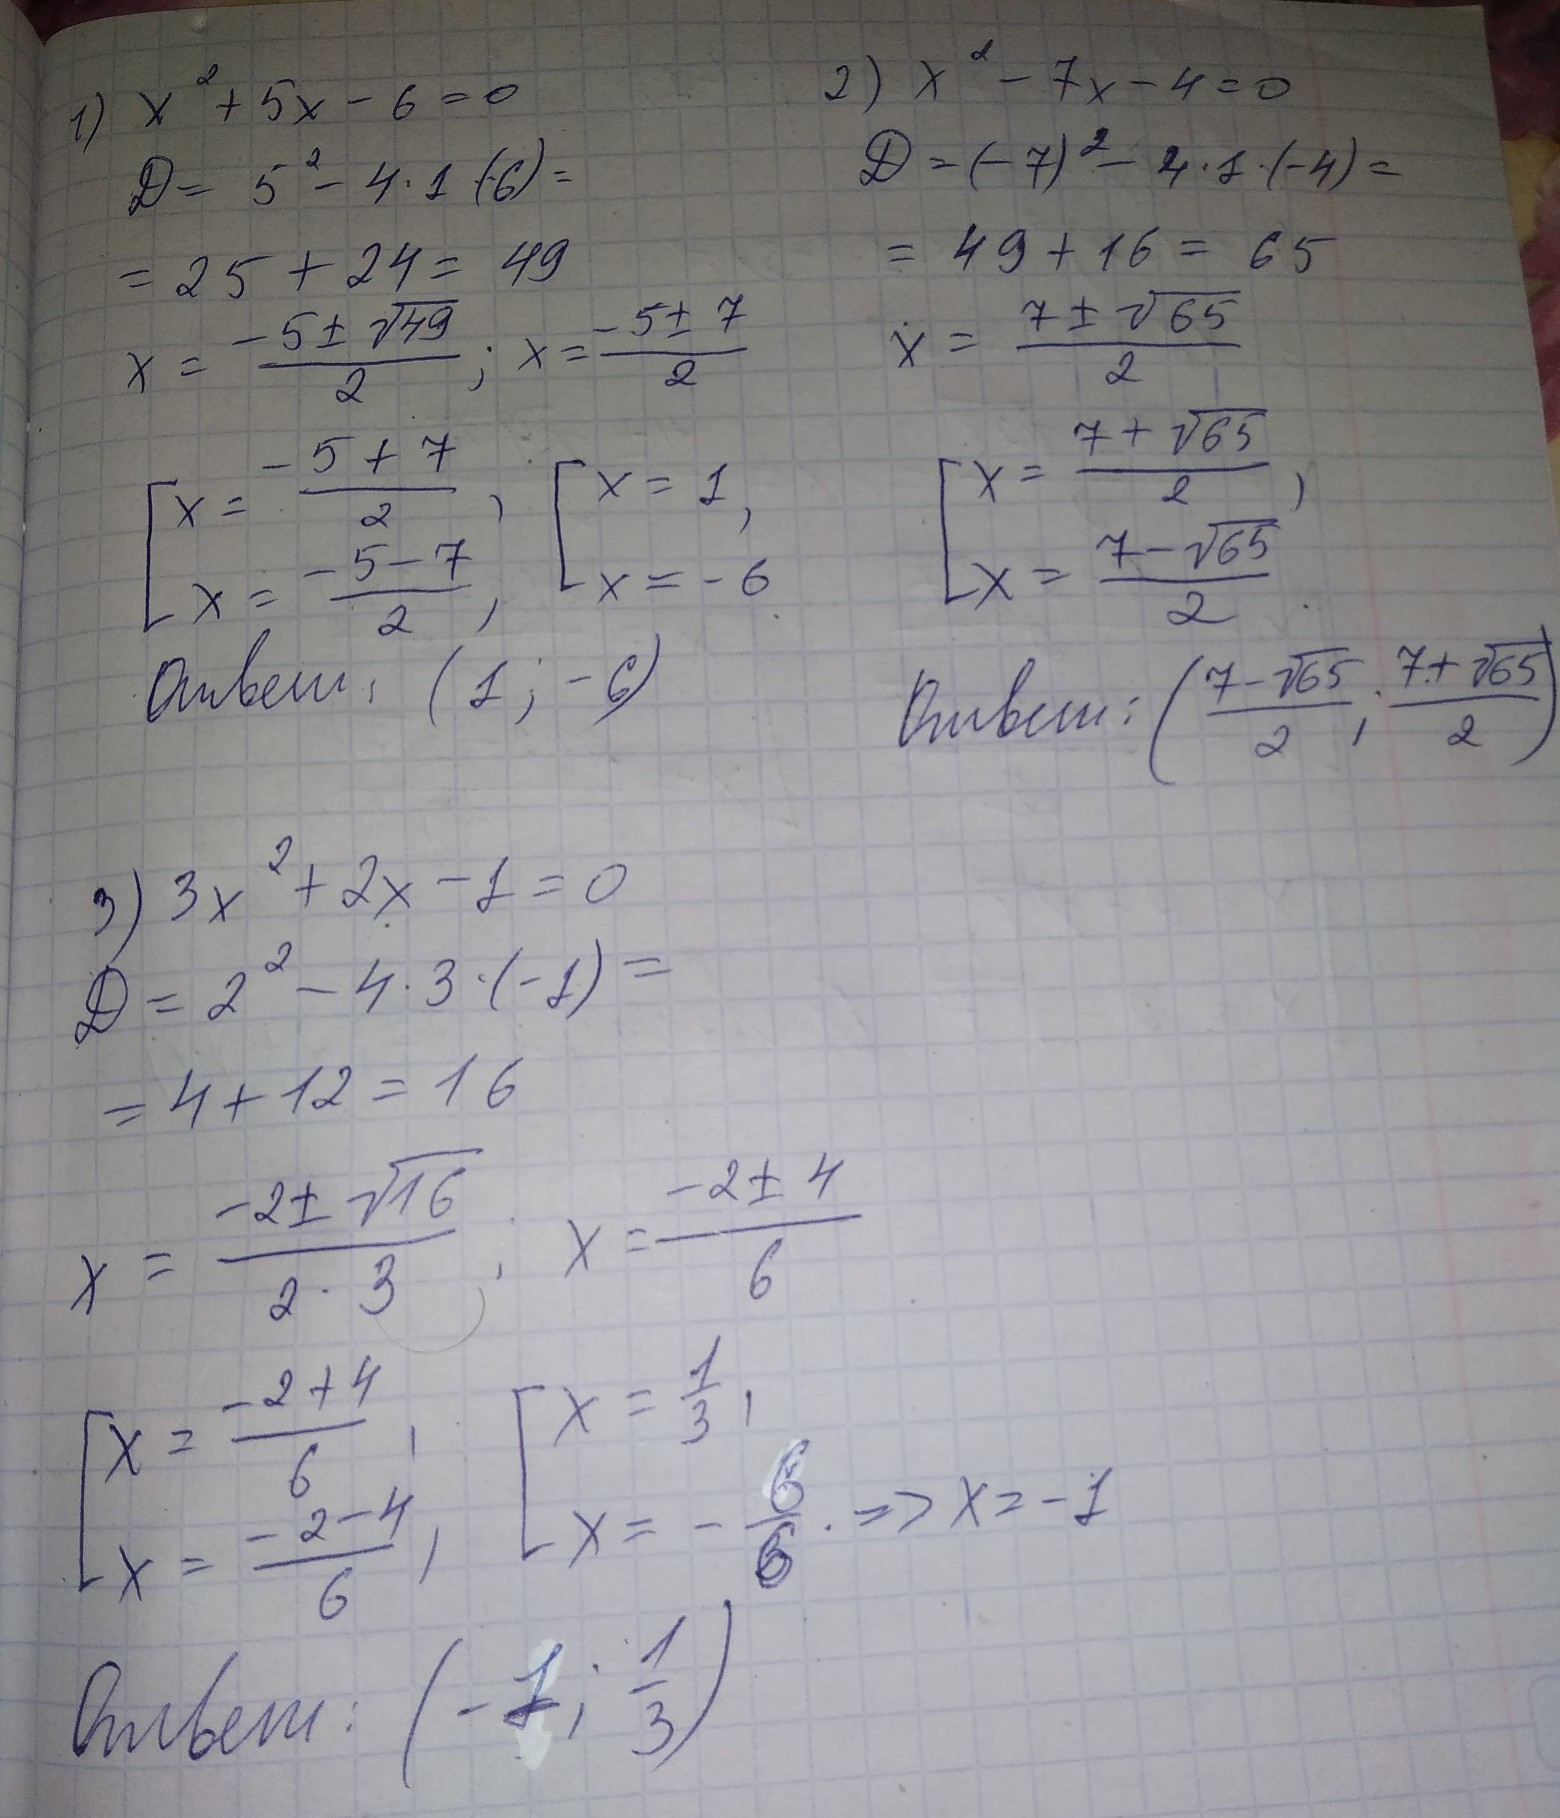 1) x² + 5x - 6 = 0
D = 5² - 4·1 (-6) =
= 25 + 24 = 49
x = (-5 ± √49)/2 ; x = (-5 ± 7)/2
[ x = (-5 + 7)/2 , [ x = 1,
x = (-5 - 7)/2 , x = -6
Ответ: (1 ; -6)
2) x² - 7x - 4 = 0
D = (-7)² - 4·1·(-4) =
= 49 + 16 = 65
x = (7 ± √65)/2
[ x = (7 + √65)/2 ,
x = (7 - √65)/2 .
Ответ: ((7 - √65)/2 ; (7 + √65)/2)
3) 3x² + 2x - 1 = 0
D = 2² - 4·3·(-1) =
= 4 + 12 = 16
x = (-2 ± √16)/(2·3) ; x = (-2 ± 4)/6
[ x = (-2 + 4)/6 , [ x = 1/3 ,
x = (-2 - 4)/6 , x = - 6/6 . => x = -1
Ответ: (-1 ; 1/3)